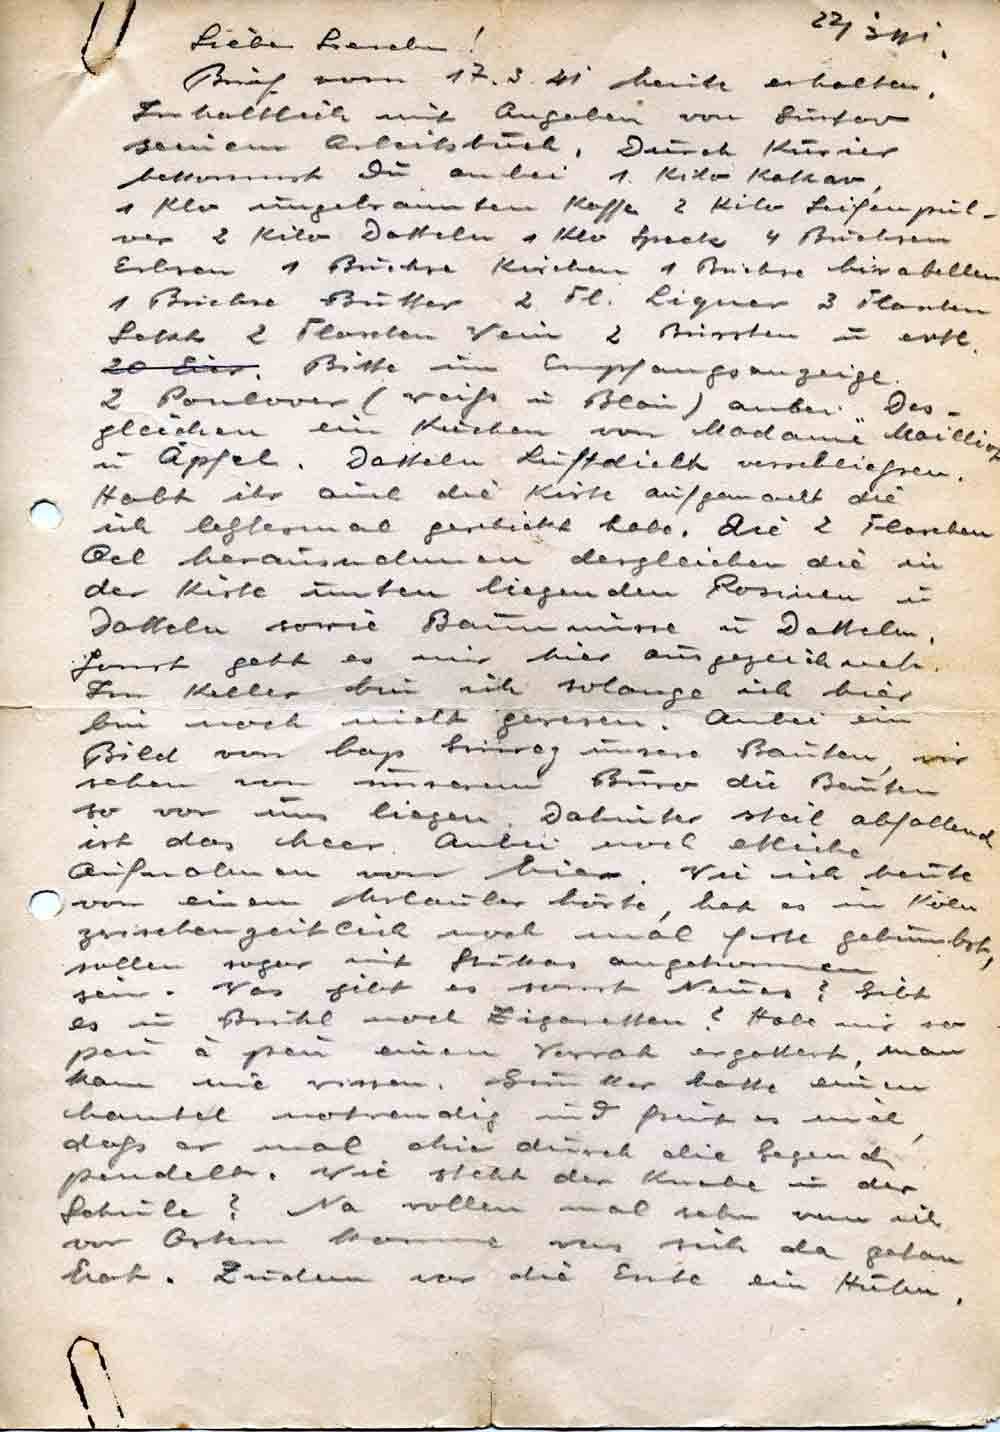 22/3 41.
Liebe !
Brief vom 17.3.41 heute erhalten.
Inhaltlich mit Angaben von Gustav
seinem Arbeitsbuch. Durch Kurier
bekommst Du anbei 1 Kilo Kakao,
1 Klo ungebrannten Kaffe 2 Kilo Seifenpul-
ver 2 Kilo Datteln 1 Klo Speck 4 Büchsen
Erbsen 1 Büchse Kirschen 1 Büchse Mirabellen
1 Büchse Butter 2 Fl. Liquer 3 Flaschen
Sekt 2 Flaschen Wein 2 Bürsten u evtl.
20 Eier. Bitte um Empfangsanzeige.
2 Poulover (weiß u Blau) anbei. Des-
gleichen ein Kuchen von Madame
u Äpfel. Datteln Luftdicht verschliessen.
Habt ihr auch die Kiste aufgemacht die
ich letztesmal geschickt habe. Die 2 Flaschen
Oel herausnehmen dergleichen die in
der Kiste unten liegenden Rosinen u
Datteln sowie Baumnüsse u Datteln.
Sonst geht es mir hier ausgezeichnet.
Im Keller bin ich solange ich hier
bin noch nicht gewesen. Anbei ein
Bild von unsere Bauten, wir
sehen von unserem Büro die Bauten
so vor uns liegen. Dahinter steil abfallend
ist das Meer. Anbei noch etliche
Aufnahmen von hier. Wie ich heute
von einem Urlauber hörte, hat es in Köln
zwischenzeitlich noch mal feste gebumbst,
sollen sogar mit Stukas angekommen
sein. Was gibt es sonst Neues? Gibt
es in Brühl noch Zigaretten? Habe mir so
peu à peu einen Vorrat ergattert, man
kann nie wissen. Günter hatte einen
Mantel notwendig und freut es mich,
daß er mal chic durch die Gegend
pendelt. Wie steht der Knabe in der
Schule? Na wollen mal sehn wenn ich
vor Ostern komme was sich da getan
hat. Zudem war die Ente ein Huhn.